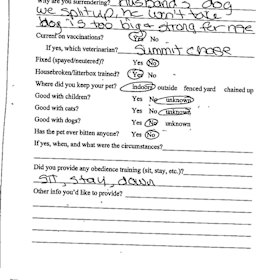 Why are you surrendering? husband's dog
we split up, he can't take
dog is too big & strong for me
Current on vaccinations? Yes No
If yes, which veterinarian? Summit Chase
Fixed (spayed/neutered)? Yes No
Housebroken/litterbox trained? Yes No
Where did you keep your pet? indoors outside fenced yard chained up
Good with children? Yes No unknown
Good with cats? Yes No unknown
Good with dogs? Yes No unknown
Has the pet ever bitten anyone? Yes No
If yes, when, and what were the circumstances?
Did you provide any obedience training (sit, stay, etc.)?
sit, stay, down
Other info you'd like to provide?